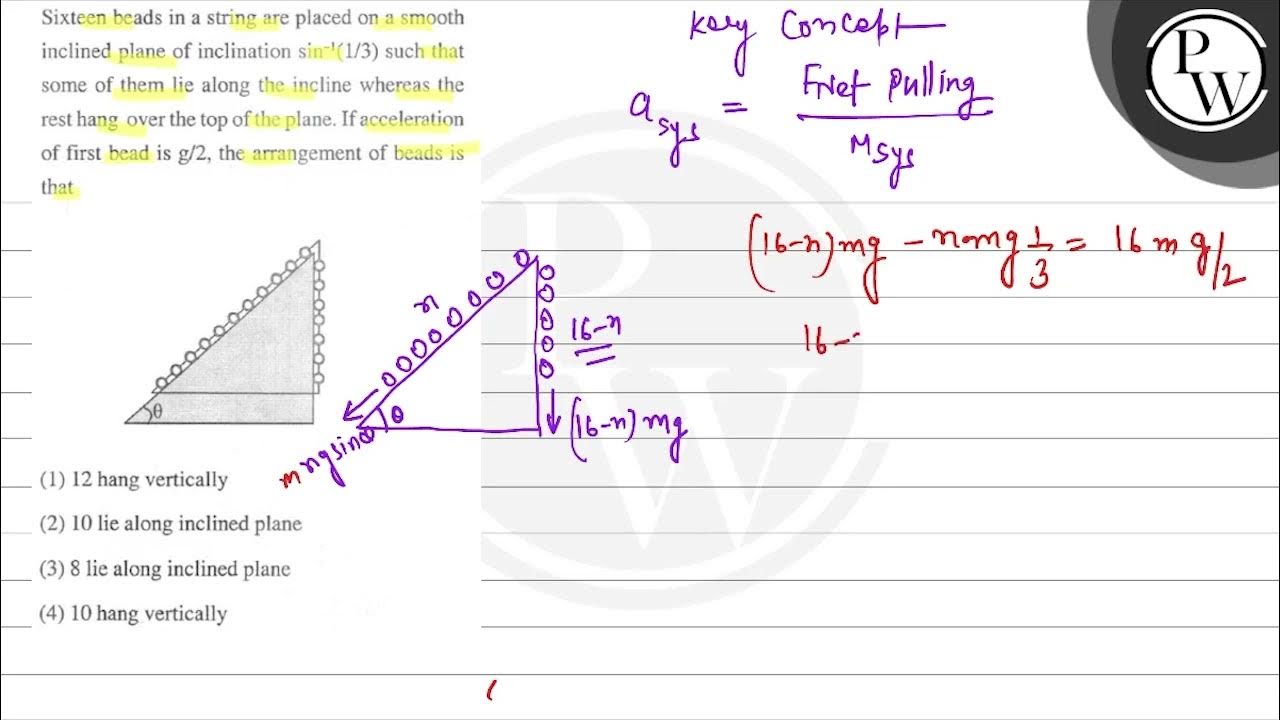 Sixteen beads in a string are placed on a smooth
inclined plane of inclination sin⁻¹(1/3) such that
some of them lie along the incline whereas the
rest hang over the top of the plane. If acceleration
of first bead is g/2, the arrangement of beads is
that
θ
(1) 12 hang vertically
(2) 10 lie along inclined plane
(3) 8 lie along inclined plane
(4) 10 hang vertically
n
16-n
θ
(16-n) mg
Key Concept
a sys =
Msys
(16-n)mg - n mg 1/3 = 16 m g/2
16 -
P
W